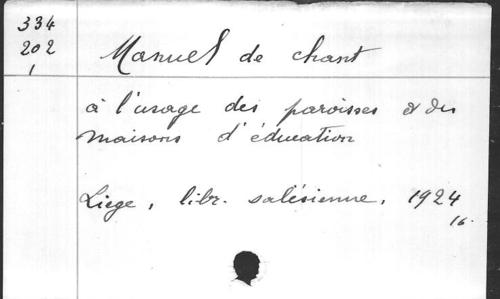 334
202
1
Manuel de chant
à l'usage des paroisses & des
maisons d'éducation
Liège, libr. salésienne, 1924
16.